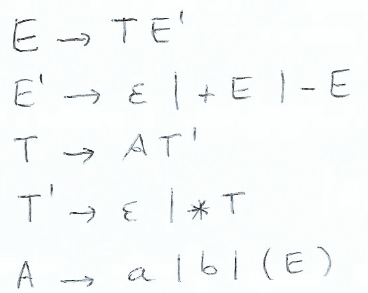 E → TE'
E' → ε | + E | - E
T → AT'
T' → ε | * T
A → a | b | (E)